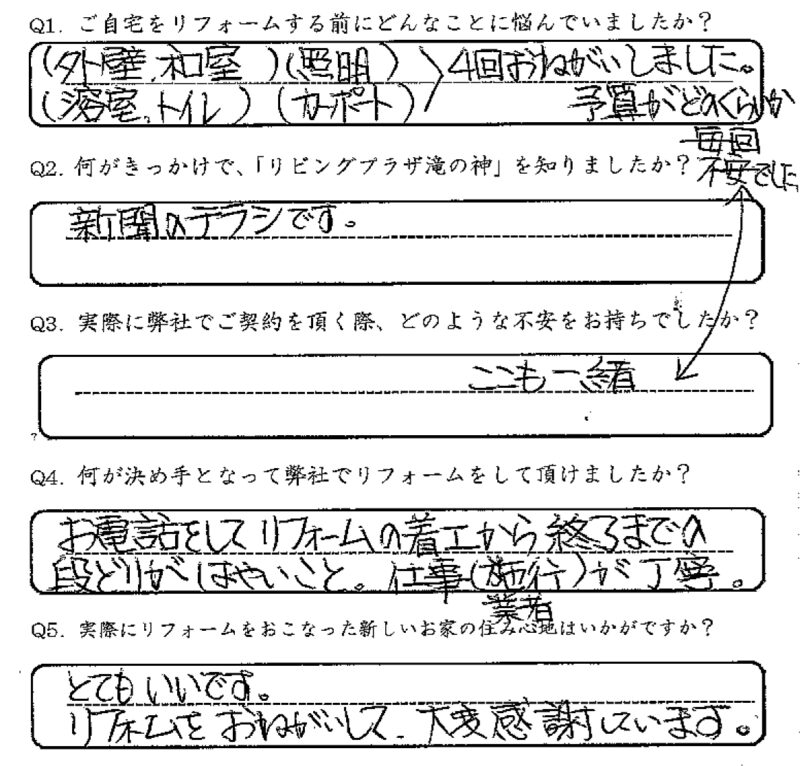 Q1. ご自宅をリフォームする前にどんなことに悩んでいましたか?
(外壁、和室)(照明)〉4回おねがいしました。
(浴室、トイレ)(カーポート)
予算がどのくらいか
毎回
不安でした
Q2. 何がきっかけで、「リビングプラザ滝の神」を知りましたか?
新聞のチラシです。
Q3. 実際に弊社でご契約を頂く際、どのような不安をお持ちでしたか?
ここも一緒
Q4. 何が決め手となって弊社でリフォームをして頂けましたか?
お電話をしてリフォームの着工から終了までの
段どりがはやいこと。仕事(施行)が丁寧。
業者
Q5. 実際にリフォームをおこなった新しいお家の住み心地はいかがですか?
とてもいいです。
リフォームをおねがいして、大変感謝しています。